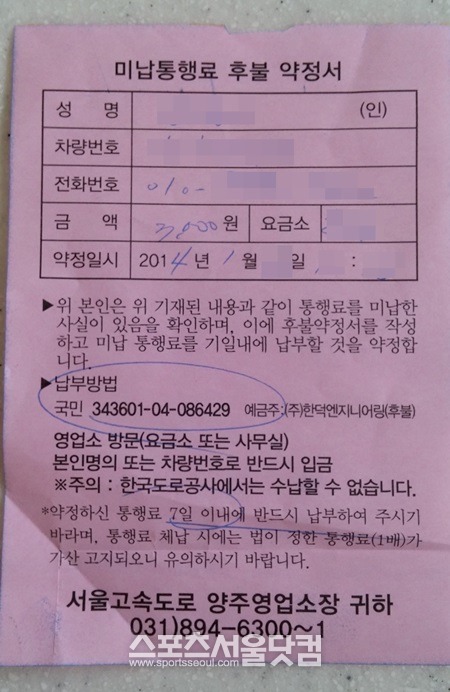 미납통행료 후불 약정서
성 명 (인)
차량번호
전화번호 010-
금 액 3800원 요금소
약정일시 2014년 1월 일 :
▶위 본인은 위 기재된 내용과 같이 통행료를 미납한
사실이 있음을 확인하며, 이에 후불약정서를 작성
하고 미납 통행료를 기일내에 납부할 것을 약정합
니다.
▶납부방법
국민 343601-04-086429 예금주:(주)한덕엔지니어링(후불)
영업소 방문(요금소 또는 사무실)
본인명의 또는 차량번호로 반드시 입금
※주의 : 한국도로공사에서는 수납할 수 없습니다.
*약정하신 통행료 7일 이내에 반드시 납부하여 주시기
바라며, 통행료 체납 시에는 법이 정한 통행료(1배)가
가산 고지되오니 유의하시기 바랍니다.
서울고속도로 양주영업소장 귀하
031)894-6300~1
스포츠서울닷컴
www.sportsseoul.com